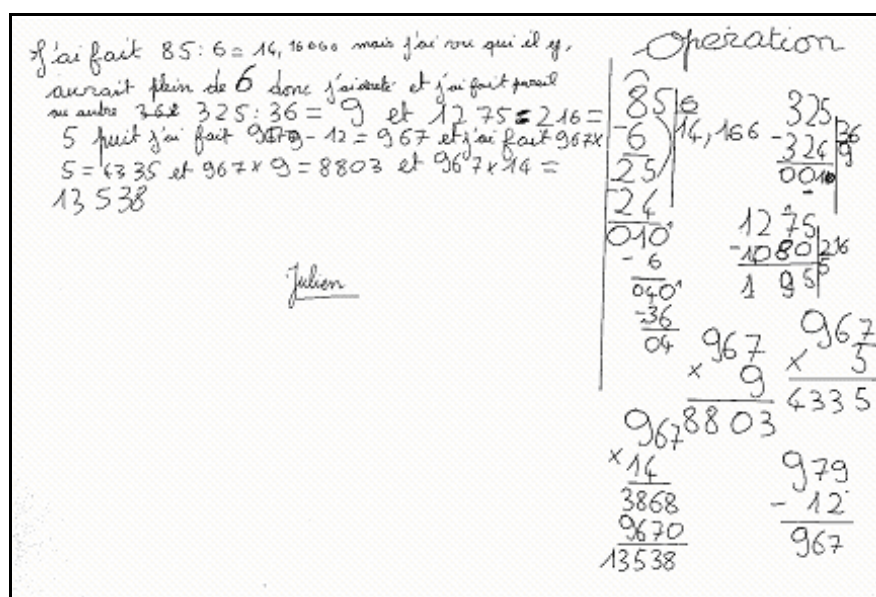 J'ai fait 85 : 6 = 14, 16000 mais j'ai vu qui il y,
aurait plein de 6 donc j'ai arrêté et j'ai fait pareil
au autre 325 : 36 = 9 et 1275 = 216 =
5 puit j'ai fait 979 - 12 = 967 et j'ai fait 967x
5 = 4335 et 967 x 9 = 8803 et 967 x 14 =
13 538
Julien
Opération
85 6
-6 14,166
25
-24
010
- 6
040
-36
04
325 36
-324 9
001
1275
-1080 216
195 5
967
x 9
8803
967
x 5
4335
967
x 14
3868
9670
13538
979
- 12
967